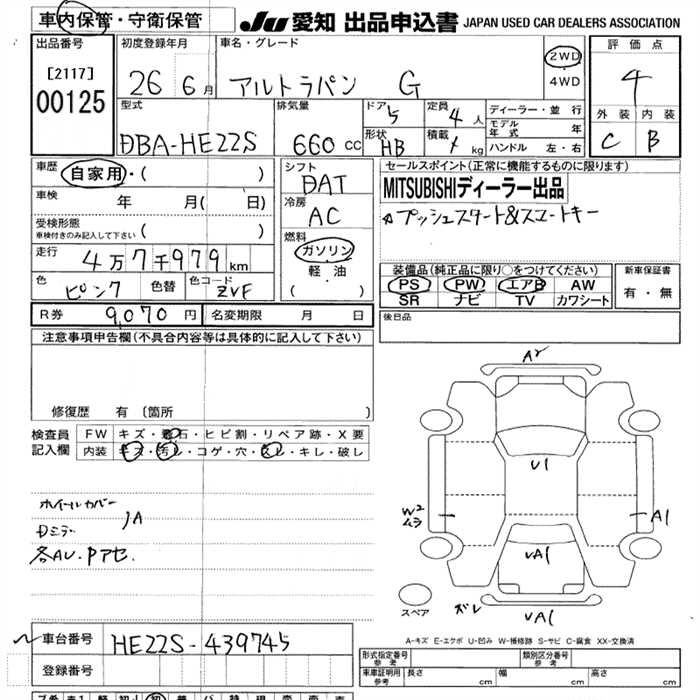 車内保管・守衛保管
JU 愛知 出品申込書 JAPAN USED CAR DEALERS ASSOCIATION
出品番号 [2117] 00125
初度登録年月 26 6月
車名・グレード アルトラパン G
2WD・4WD
評価点 4
外装 C 内装 B
型式 DBA-HE22S
排気量 660 cc
ドア 5 定員 4人
形状 HB 積載 kg
ディーラー・並行
モデル年式 年
ハンドル 左・右
車歴 自家用・( )
車検 年 月( 日)
受検形態 ( )
車検付きのみ記入して下さい
走行 4万7千979km
色 ピンク 色替 色コード ZVF
シフト DAT
冷房 AC
燃料 ガソリン・軽油・( )
セールスポイント(正常に機能するものに限ります)
MITSUBISHIディーラー出品
☆プッシュスタート&スマートキー
装備品(純正品に限り○をつけてください)
PS PW エアB AW
SR ナビ TV カワシート
新車保証書 有・無
R券 9,070円 名変期限 月 日
後日品
注意事項申告欄(不具合内容等は具体的に記入して下さい)
修復歴 有 〔箇所 〕
検査員記入欄
FW キズ・飛石・ヒビ割・リペア跡・X要
内装 キズ・汚レ・コゲ・穴・スレ・キレ・破レ
ホイールカバー
Dミラー 1A
各AU.Pアセ.
A2
U1
W2
ムラ
A1
UA1
スペア
ズレ
UA1
A-キズ E-エクボ U-凹み W-補修跡 S-サビ C-腐食 XX-交換済
車台番号 HE22S-439745
登録番号
形式指定番号 参考
類別区分番号 参考
車庫証明用 参考 長さ cm 幅 cm 高さ cm